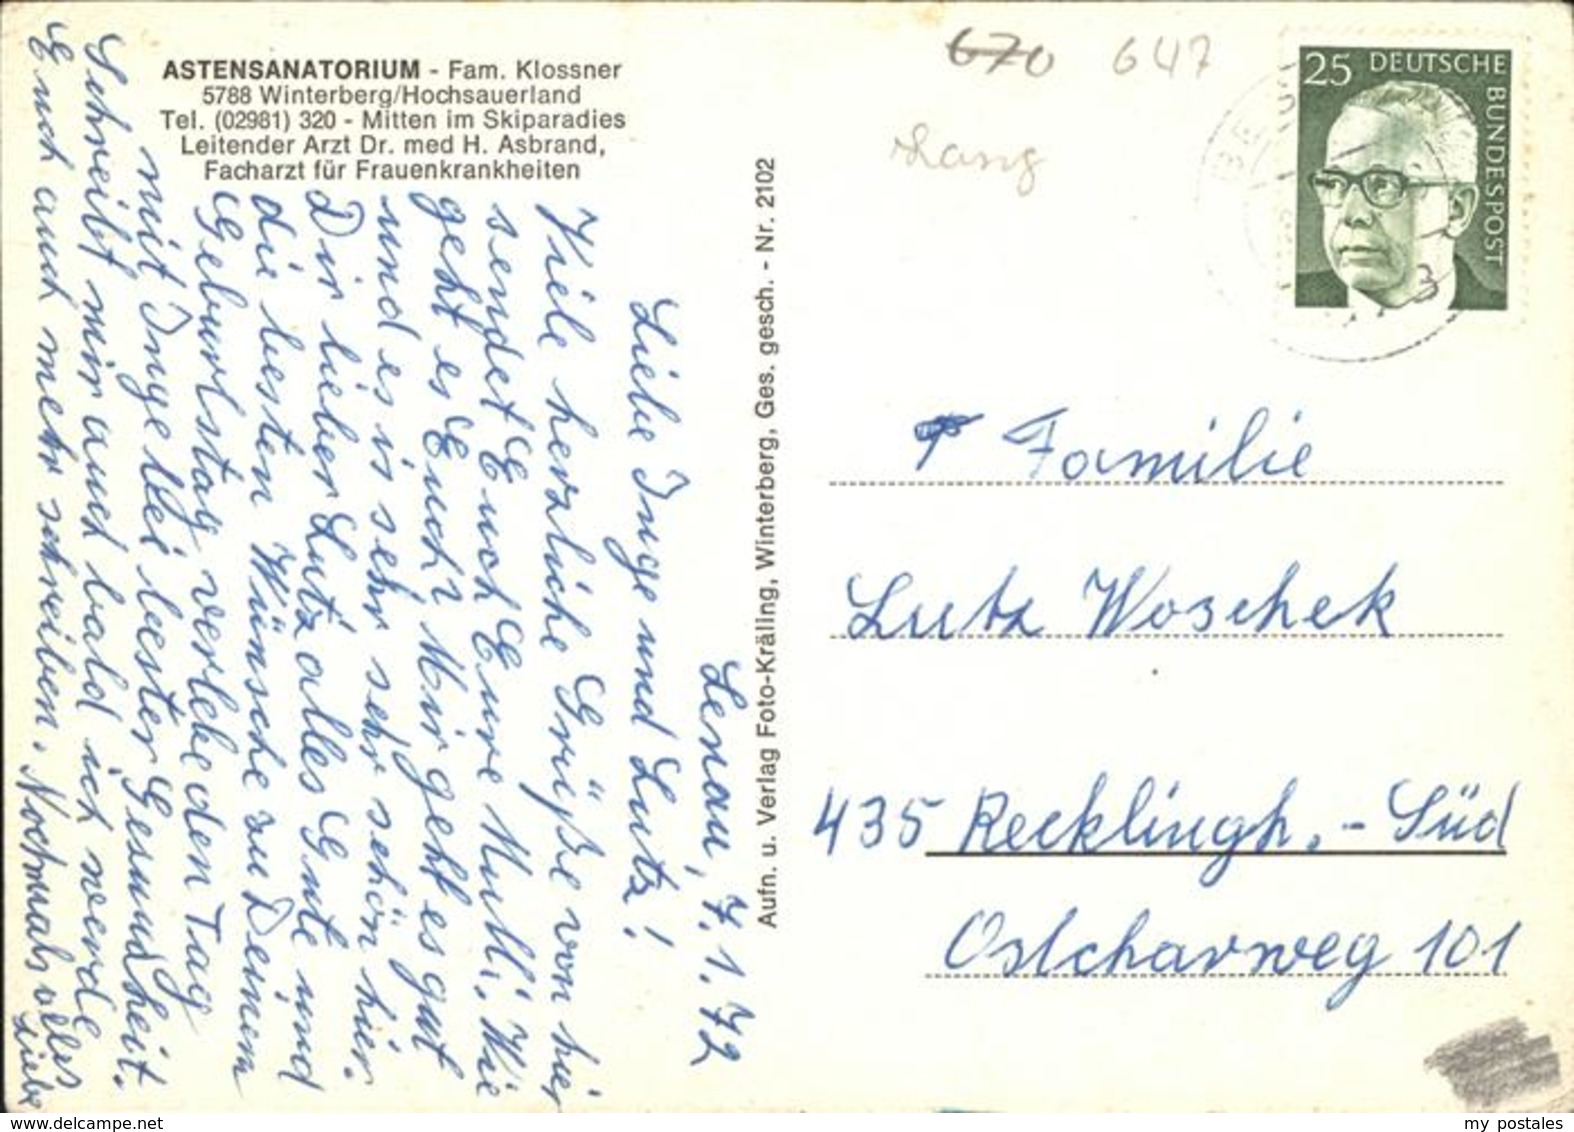 ASTENSANATORIUM - Fam. Klossner
5788 Winterberg/Hochsauerland
Tel. (02981) 320 - Mitten im Skiparadies
Leitender Arzt Dr. med H. Asbrand,
Facharzt für Frauenkrankheiten
Lenau, 7.1.72
Liebe Inge und Lutz!
Viele herzliche Grüße von hier
sendet Euch Eure Mutti. Wie
geht es Euch? Mir geht es gut
und es is sehr sehr schön hier.
Dir lieber Lutz alles Gute und
die besten Wünsche zu Deinem
Geburtstag verlebe den Tag
mit Inge bei bester Gesundheit.
Schreibt mir auch bald ich werde
Euch auch mehr schreiben. Nochmals alles
Liebe
Aufn. u. Verlag Foto-Kräling, Winterberg, Ges. gesch. - Nr. 2102
670 647
25 DEUTSCHE
BUNDESPOST
Familie
Lutz Woschek
435 Recklingh. - Süd
Ostcharweg 101
my postales